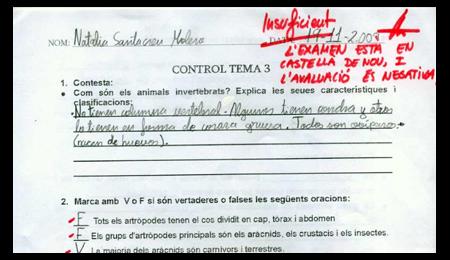 Insuficient
NOM: Natalia Santacreu Molero DATA: 19-11-2008
L'EXAMEN ESTÀ EN
CASTELLA DE NOU, I
L'AVALUACIÓ ÉS NEGATIVA
CONTROL TEMA 3
1. Contesta:
• Com són els animals invertebrats? Explica les seues característiques i
clasificacions:
No tienen columna vertebral. Algunos tienen concha y otros
lo tienen en forma de coraza gruesa. Todos son oviparos
(nacen de huevos).
2. Marca amb V o F si són vertaderes o falses les següents oracions:
F Tots els artròpodes tenen el cos dividit en cap, tòrax i abdomen
F Els grups d'artròpodes principals són els aràcnids, els crustacis i els insectes.
V La majoria dels aràcnids són carnívors i terrestres.